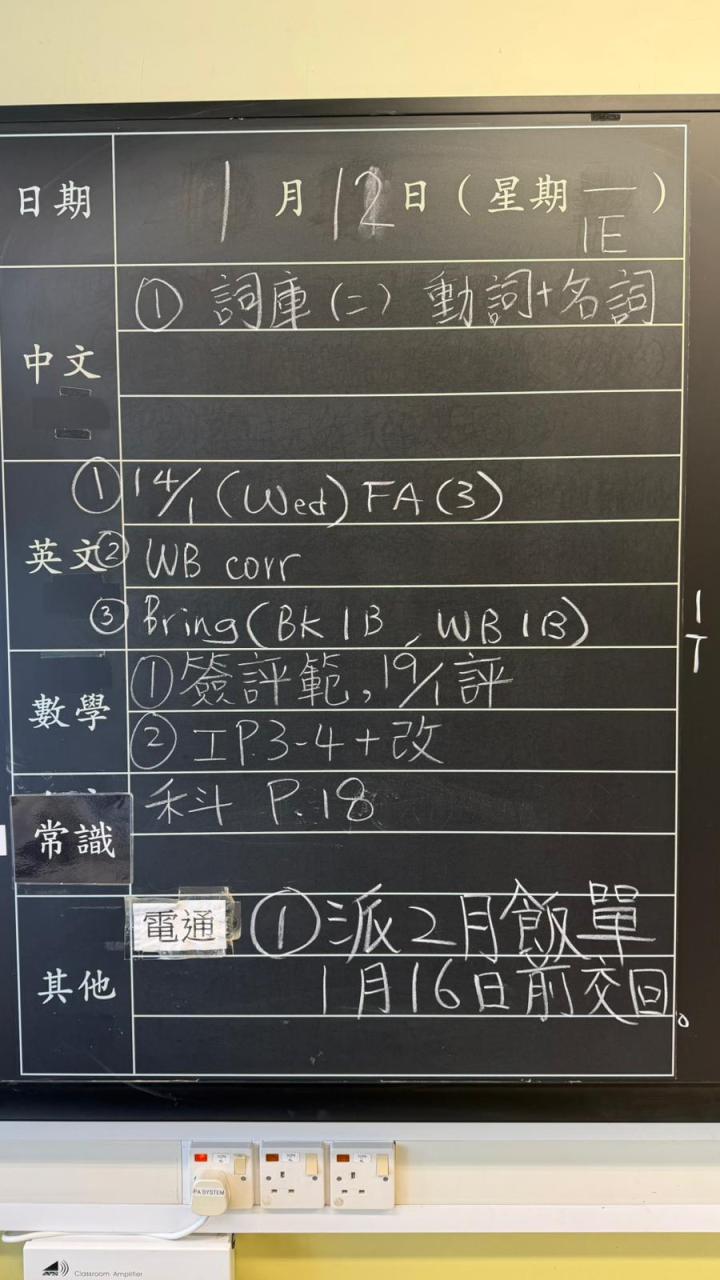 日期 1月12日（星期一）
1E
中文 ① 詞庫(二) 動詞+名詞
英文 ① 14/1 (Wed) FA (3)
② WB corr
③ Bring (BK 1B, WB 1B)
數學 ① 簽評範, 19/1評
② 工P.3-4+改
常識 科 P.18
其他 電通 ① 派2月飯單
1月16日前交回。
1
T
PA SYSTEM
Classroom Amplifier